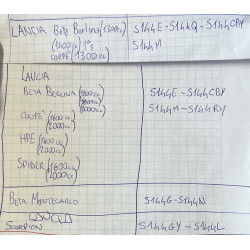 LANCIA Beta Berlina (1300cc) S144E - S144Q - S144CBY
(1400cc) 1ªs S144M
COUPÉ (1300cc)
LANCIA
BETA BERLINA (1600cc S144E - S144CBY
2000cc)
COUPÉ (1600cc S144M - S144RY
2000cc)
HPE (1600cc
2000cc)
SPIDER (1600cc
2000cc)
BETA MONTECARLO S144G - S144N
LANCIA
SCORPION S144GY - S144L